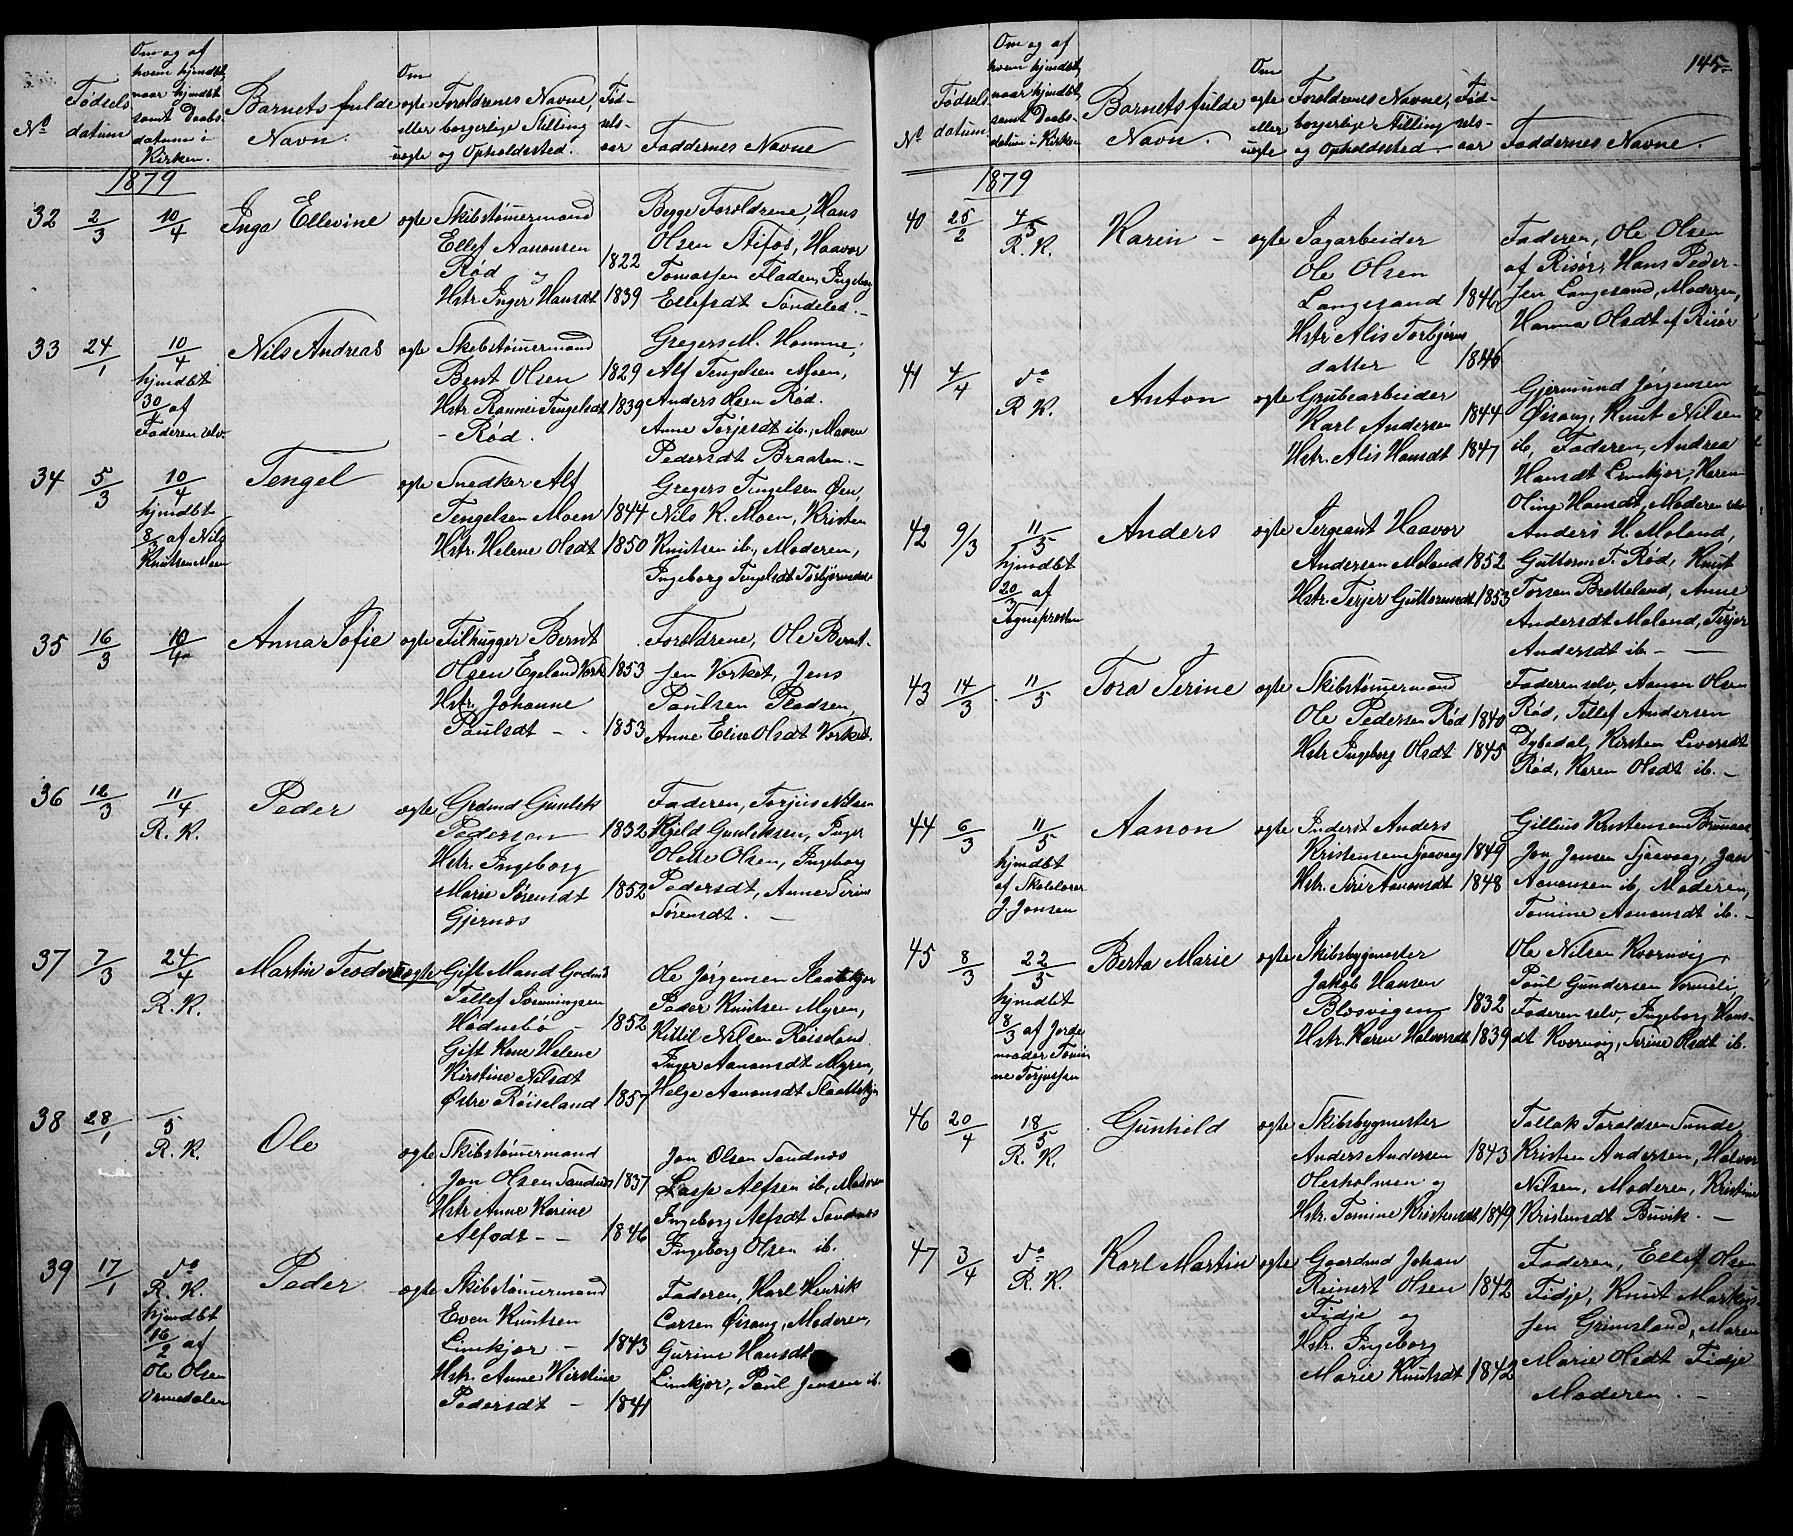 145
Nº
Fødsels
datum
Om og af
hvem hjmdbt,
naar hjmdbt
samt Daabs-
datum i
Kirken.
Barnets fulde
Navn.
Om
ægte
eller
uægte
Forældrenes Navne,
borgerlige Stilling
og Opholdssted.
Fød-
sels-
aar
Faddernes Navne
1879
32
2/3
10/4
Inga Ellevine
ægte
Skibstømermand
Ellef Aanonsen
Rød og
Hstr Inger Hansdt
1822
1839
Begge Forældrene, Hans
Olsen Stifos, Haavor
Tomassen Fladen, Ingeborg
Ellefsdt Søndeled.
33
24/1
10/4
hjmdbt
30/1 af
Faderen selv
Nils Andreas
ægte
Skibstømermand
Bent Olsen
Hstr Rannei Tengelsdt
- Rød.
1829
1839
Gregers M. Homme,
Alf Tengelsen Moen,
Anders Olsen Rød.
Anne Torjesdt ib., Maren
Pedersdt Braaten.
34
5/3
10/4
hjmdbt
8/3 af Nils
Knutsen Moen
Tengel
ægte
Snedker Alf
Tengelsen Moen
Hstr. Helene Olsdt
1844
1850
Gregers Tengelsen Øen,
Nils K. Moen, Kristen
Knutsen ib., Moderen,
Ingeborg Tengelsdt
35
16/3
10/4
Anna Sofie
ægte
Tilhugger Bernt
Olsen Egeland Verk
Hstr. Johanne
Paulsdt -
1853
1853
Forældrene, Ole Bernt-
sen Verket, Jens
Paulsen Pladsen,
Anne Elise Olsdt Verket.
36
12/3
11/4
R. K.
Peder
ægte
Grdmd Gunleks
Pedersen
Hstr. Ingeborg
Marie Sørensdt
Gjernæs
1832
1852
Faderen, Torjus Nilsen
Kjeld Gunleksen, Inger
Olette Olsen, Ingeborg
Pedersdt, Anne Serine
Sørensdt.
37
7/3
24/4
R. K.
Martin Teodor
uægte
Gift Mand Grdmd
Tellef Svenningsen
Hødnebø
Gift Kone Helene
Kirstine Nilsdt
Østre Røiseland
1852
1857
Ole Jørgensen Slaatekjær
Peder Knutsen Myren,
Kittil Nilsen Røiseland.
Inger Aanonsdt Myren,
Helge Aanonsdt Slaattekjær
38
28/1
/5
R. K.
Ole
ægte
Skibstømermand
Jon Olsen Sandnæs
Hstr Anne Karine
Alfsdt -
1837
1846
Jon Olsen Sandnæs
Lasse Alfsen ib., Moderen
Ingeborg Alfsdt Sandnæs
Ingeborg Olsen ib.
39
17/1
do
R. K.
hjmdbt
16/2 af
Ole Olsen
Ormdalen
Peder
ægte
Skibstømermand
Even Knutsen
Limkjær -
Hstr. Anne Kirstine
Pedersdt -
1843
1841
Faderen, Karl Henrik
Carsen Øisang, Moderen,
Gurine Hansdt
Limkjær, Paul Jensen ib.
Nº
Fødsels
datum
Om og af
hvem hjmdbt,
naar hjmdbt
samt Daabs-
datum i Kirken
Barnets fulde
Navn.
Om
ægte
eller
uægte
Forældrenes Navne,
borgerlige Stilling
og Opholdssted.
Fød-
sels-
aar
Faddernes Navne.
1879
40
25/2
4/5
R. K.
Karen -
ægte
Sagarbeider
Ole Olsen
Langesand
Hstr Alis Torbjørns
datter
1846
1846
Faderen, Ole Olsen
af Risør, Hans Peder-
sen Langesand, Moderen,
Hanna Olsdt af Risør
41
4/4
do
R. K.
Anton
ægte
Grubearbeider
Karl Andersen
Hstr. Alis Hansdt
1844
1847
Gjermund Jørgensen
Øisang, Knut Nilsen
ib, Faderen, Andrea
Hansdt Limkjær, Karen
Oline Hansdt, Moderen selv
42
9/3
11/5
hjmdbt
20/3 af
Sognepresten
Anders
ægte
Sergeant Haavor
Andersen Moland
Hstr. Terjer Guttormsdt
1852
1853
Anders H. Moland,
Guttorm T. Rød, Knut
Torsen Brotteland, Anne
Andersdt Moland, Terjer
Andersdt ib. -
43
14/3
11/5
Tora Serine
ægte
Skibstømermand
Ole Pedersen Rød
Hstr Ingeborg Olsdt
1840
1845
Faderen selv, Aanon Olsen
Rød, Tellef Andersen
Dybedal, Kirsten Liversdt
Rød, Karen Olsdt ib. -
44
6/3
11/5
hjmdbt
af Skolelærer
J. Jonsen
Aanon
ægte
Inderst Anders
Kristensen Sjaavaag
Hstr. Siri Aanonsdt
1849
1848
Gillius Kristensen
Jon Jonsen Sjaavaag, Jon
Aanonsen ib, Moderen,
Tomine Aanonsdt ib. -
45
8/3
22/5
hjmdbt
8/3 af Jorde
moder Tomi
ne Torjussen
Berta Marie
ægte
Skibsbygmester
Jakob Hansen
Blosvigen
Hstr. Karen Halvorsdt
1832
1839
Ole Nilsen Kvernvig,
Paul Gundersen Vormeli,
Faderen selv, Ingeborg Hans-
dt Kvernvg, Serine Olsdt ib.
46
20/4
18/5
R. K.
Gunhild
ægte
Skibsbygmester
Anders Andersen
Olesholmen og
Hstr. Tomine Kristensdt
1843
1849
Tallak Toraldsen Sunde,
Kristen Andersen, Halvor
Nilsen, Moderen, Kristine
Kristensdt Buvik. -
47
3/4
do
R. K.
Karl Martin
ægte
Gaardmd Johan
Reinert Olsen
Fidje og
Hstr. Ingeborg
Marie Knutsdt
1842
1842
Faderen, Ellef Olsen
Fidje, Knut Markus-
sen Grimsland, Maren
Marie Olsdt Fidje
Moderen. -